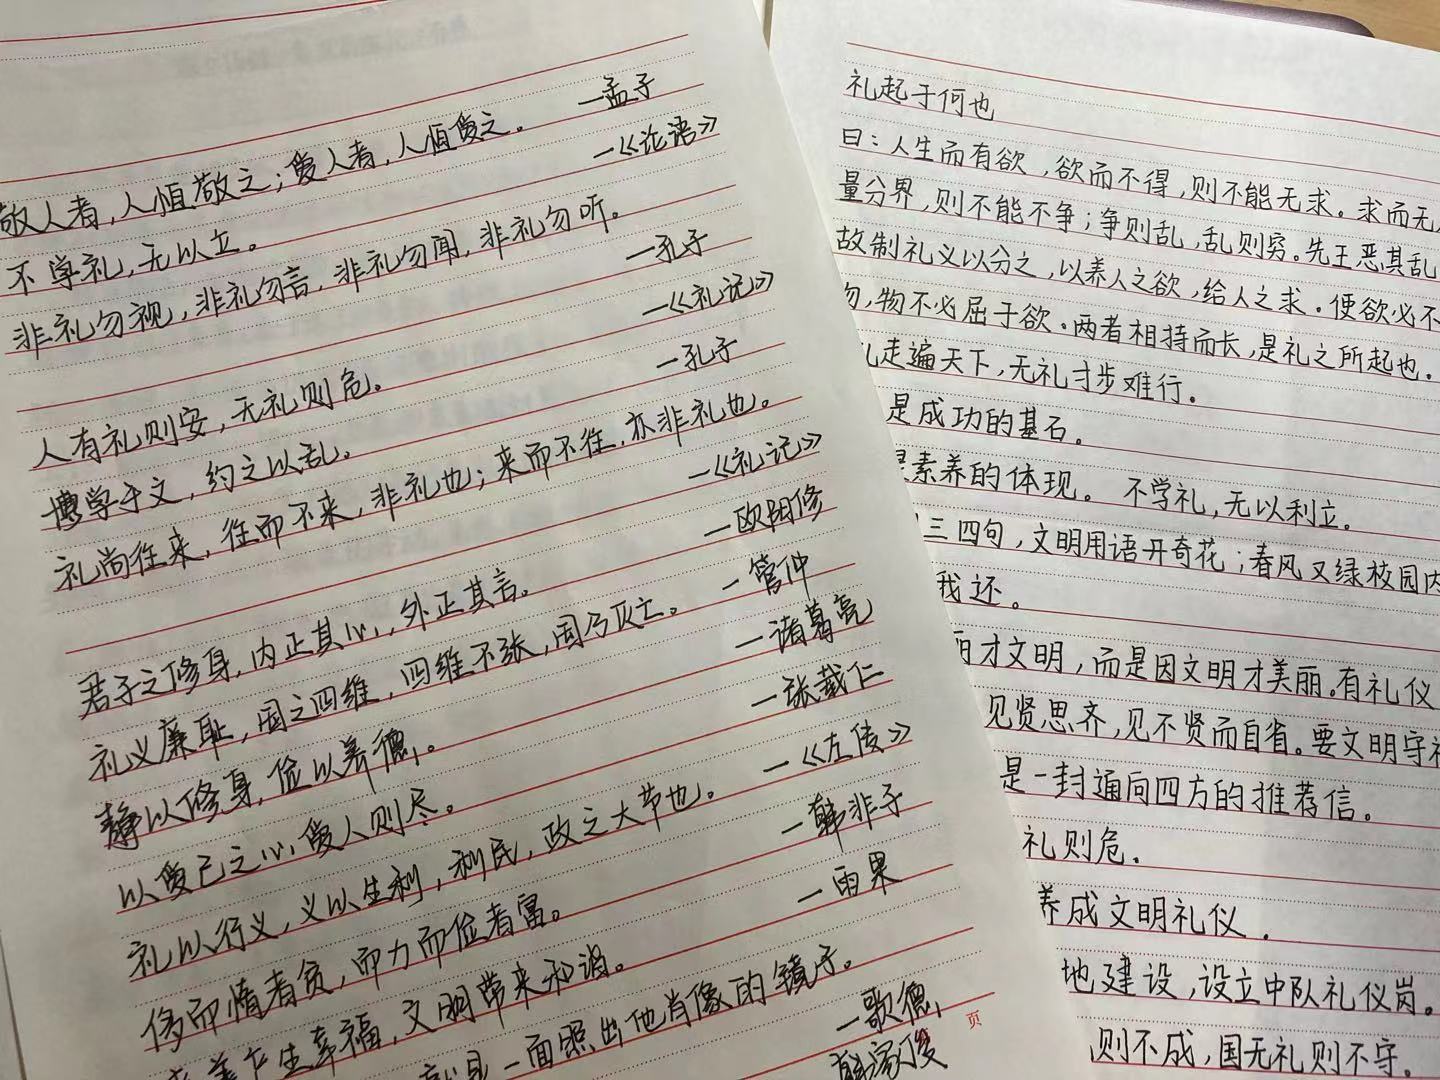 敬人者，人恒敬之；爱人者，人恒爱之。 —孟子
不学礼，无以立。 —《论语》
非礼勿视，非礼勿言，非礼勿闻，非礼勿听。
—孔子
人有礼则安，无礼则危。 —《礼记》
博学于文，约之以乱。 —孔子
礼尚往来，往而不来，非礼也；来而不往，亦非礼也。
—《礼记》
君子之修身，内正其心，外正其言。 —欧阳修
礼义廉耻，国之四维，四维不张，国乃灭亡。 —管仲
静以修身，俭以养德。 —诸葛亮
以爱己之心，爱人则尽。 —张载仁
礼以行义，义以生利，利民，政之大节也。 —《左传》
侈而惰者贫，而力而俭者富。 —韩非子
产生幸福，文明带来和谐。 —雨果
一面照出他肖像的镜子。 —歌德
页
礼起于何也
曰：人生而有欲，欲而不得，则不能无求。求而无
量分界，则不能不争；争则乱，乱则穷。先王恶其乱
故制礼义以分之，以养人之欲，给人之求。使欲必不
物，物不必屈于欲。两者相持而长，是礼之所起也。
礼走遍天下，无礼寸步难行。
是成功的基石。
是素养的体现。 不学礼，无以利立。
三四句，文明用语开奇花；春风又绿校园内
我还。
丽才文明，而是因文明才美丽。有礼仪
见贤思齐，见不贤而自省。要文明守礼
是一封通向四方的推荐信。
礼则危．
养成文明礼仪．
地建设，设立中队礼仪岗。
则不成，国无礼则不守。